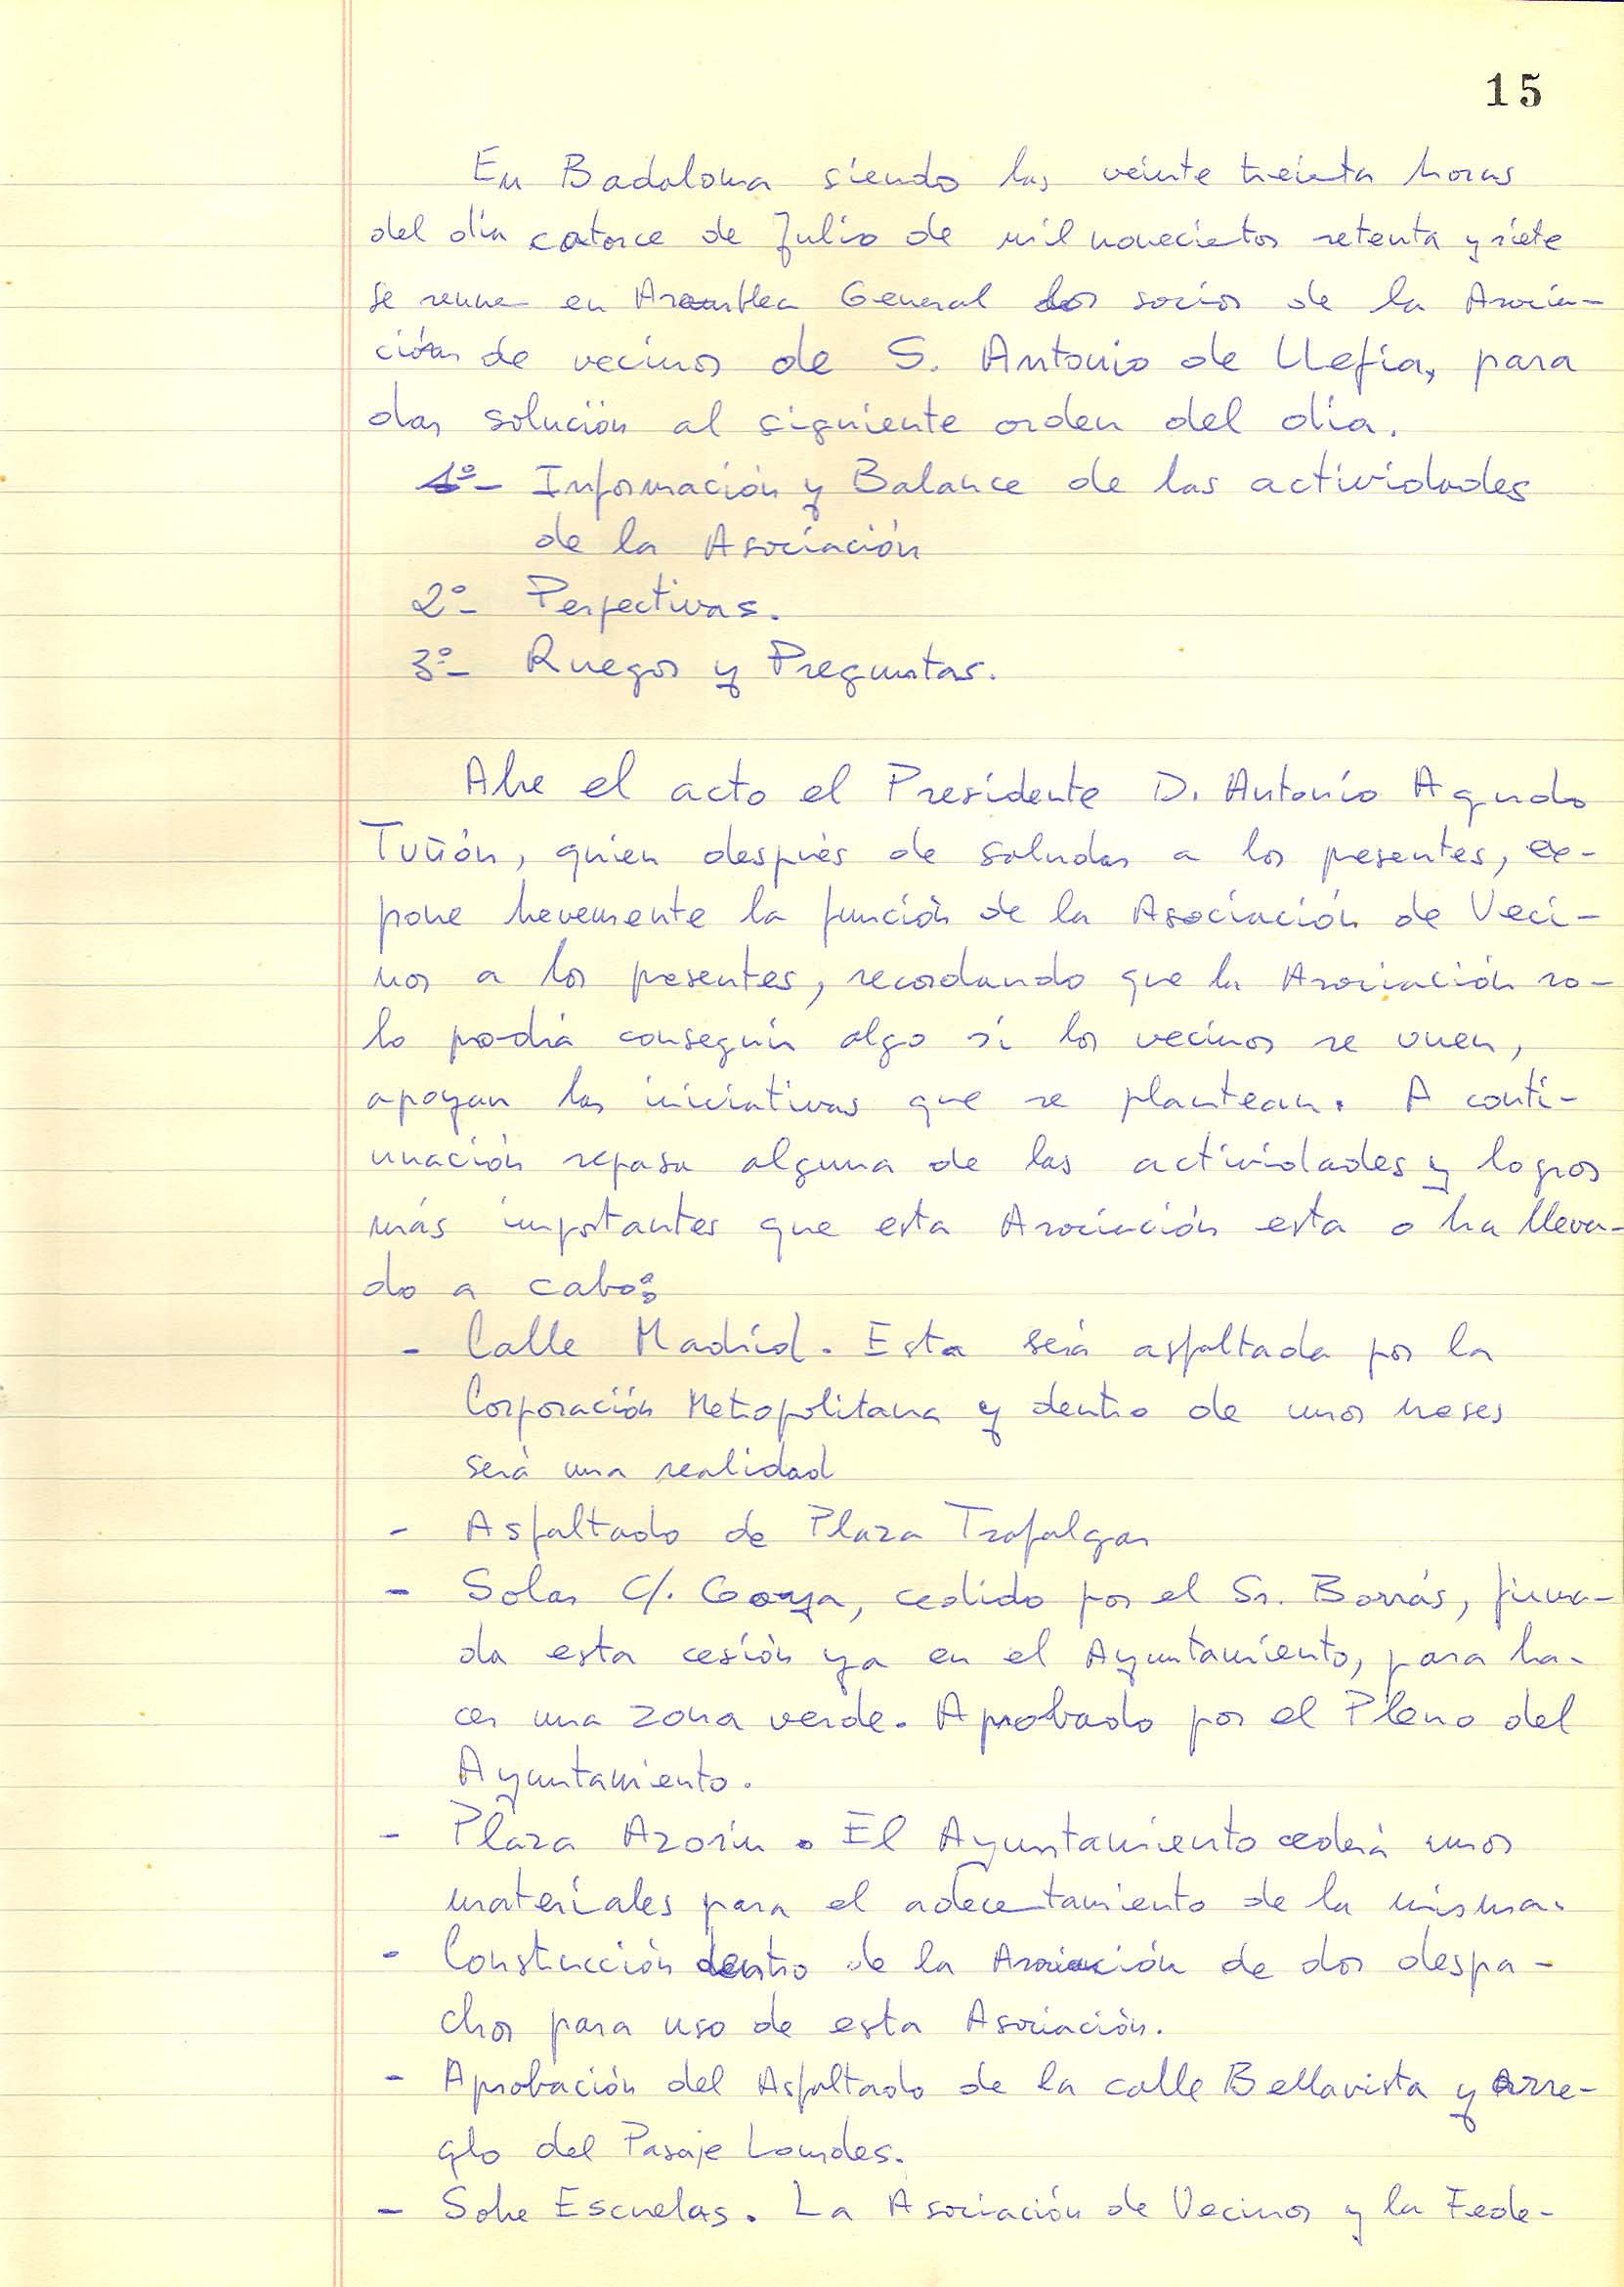 15
En Badalona siendo las veinte treinta horas
del día catorce de Julio de mil novecietos setenta y siete
se reune en Asamblea General los socios de la Asocia-
ción de vecinos de S. Antonio de Llefia, para
dar solución al siguiente orden del dia.
1º- Información y Balance de las actividades
de la Asociación
2º- Perpectivas.
3º- Ruegos y Preguntas.
Abre el acto el Presidente D. Antonio Agudo
Tuñón, quien después de saludar a los presentes, ex-
pone brevemente la función de la Asociación de Veci-
nos a los presentes, recordando que la Asociación so-
lo podrá conseguir algo si los vecinos se unen,
apoyan las iniciativas que se plantean. A conti-
nuación repasa alguna de las actividades y logros
más importantes que esta Asociación esta o ha lleva-
do a cabo:
- Calle Madrid. Esta será asfaltada por la
Corporación Metropolitana y dentro de unos meses
será una realidad
- Asfaltado de Plaza Trafalgar
- Solar C/. Goya, cedido por el Sr. Borrás, firma-
da esta cesión ya en el Ayuntamiento, para ha-
cer una zona verde. Aprobado por el Pleno del
Ayuntamiento.
- Plaza Azorín. El Ayuntamiento cederá unos
materiales para el adecentamiento de la misma.
- Construcción dentro de la Asociación de dos despa-
chos para uso de esta Asociación.
- Aprobación del Asfaltado de la calle Bellavista y Arre-
glo del Pasaje Lourdes.
- Sobre Escuelas. La Asociación de Vecinos y la Fede-